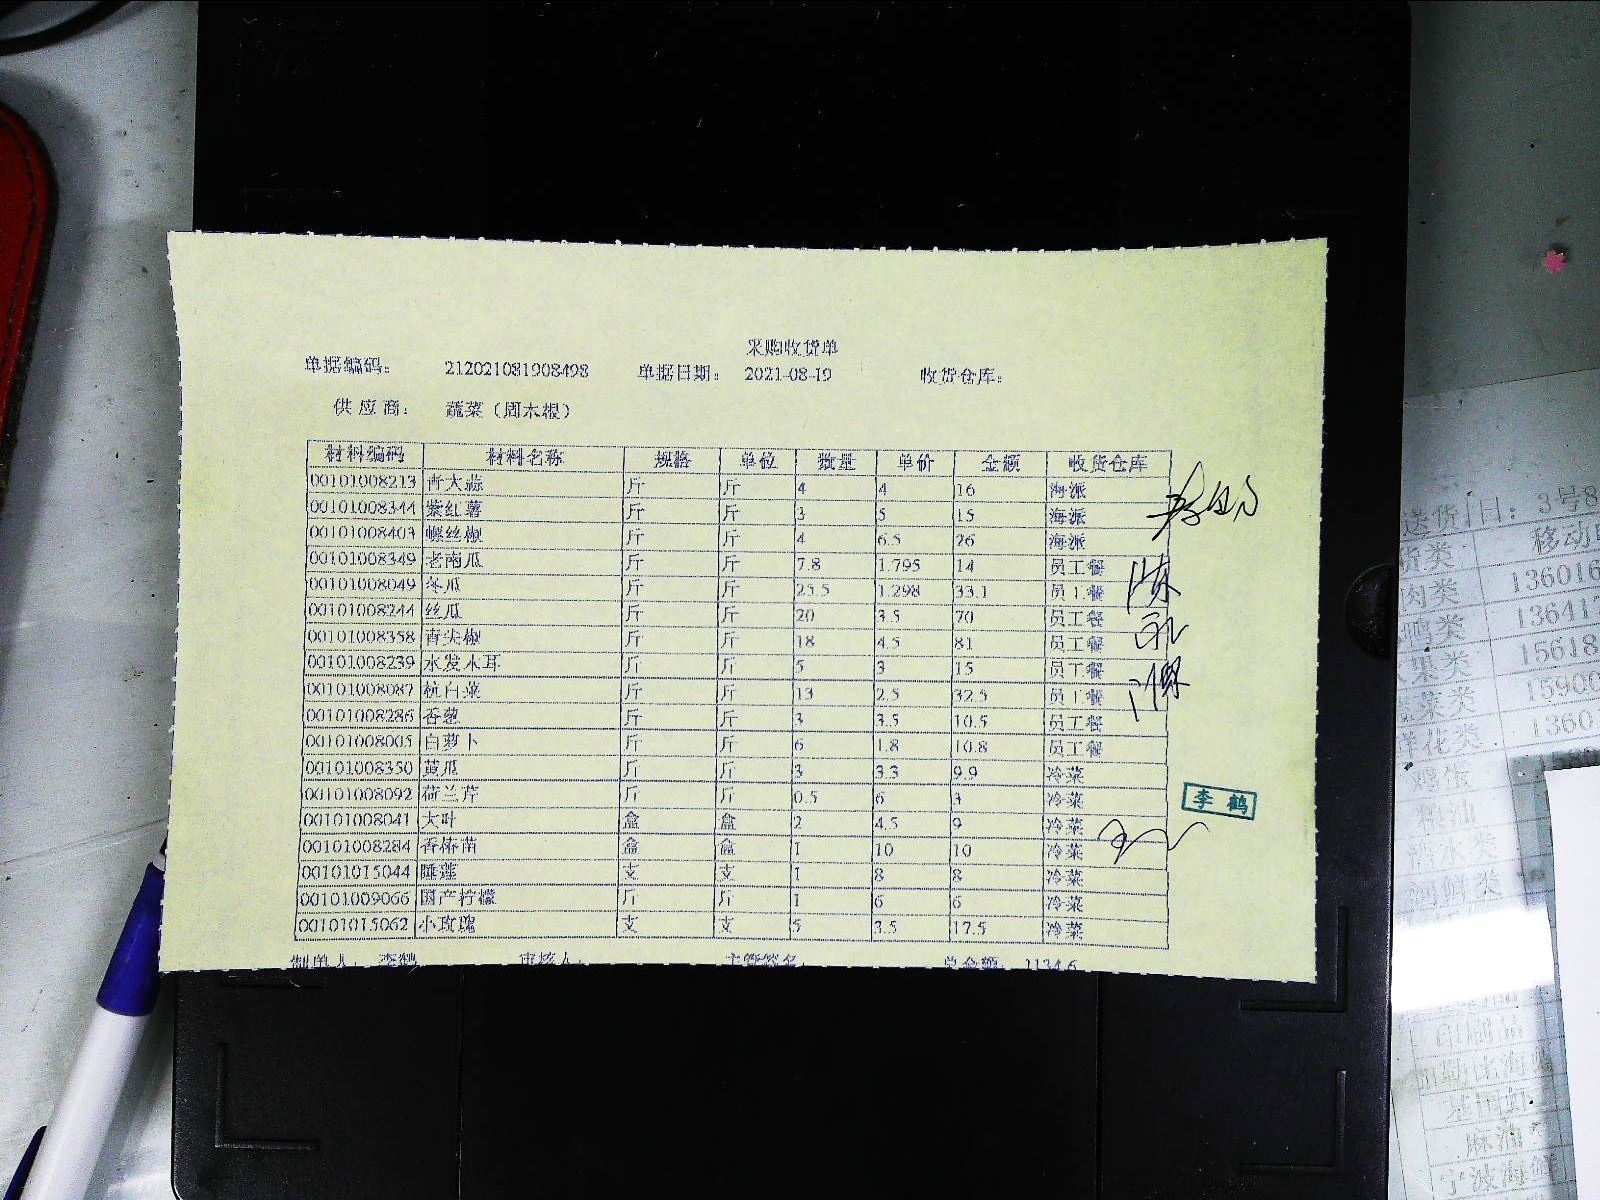 采购收货单
单据编码： 212021081908498 单据日期： 2021-08-19 收货仓库：
供应商： 蔬菜（周木根）
材料编码 材料名称 规格 单位 数量 单价 金额 收货仓库
00101008213 青大蒜 斤 斤 4 4 16 海派
00101008344 紫红薯 斤 斤 3 5 15 海派
00101008403 螺丝椒 斤 斤 4 6.5 26 海派
00101008349 老南瓜 斤 斤 7.8 1.795 14 员工餐
00101008049 冬瓜 斤 斤 25.5 1.298 33.1 员工餐
00101008244 丝瓜 斤 斤 20 3.5 70 员工餐
00101008358 青尖椒 斤 斤 18 4.5 81 员工餐
00101008239 水发木耳 斤 斤 5 3 15 员工餐
00101008087 杭白菜 斤 斤 13 2.5 32.5 员工餐
00101008286 香葱 斤 斤 3 3.5 10.5 员工餐
00101008005 白萝卜 斤 斤 6 1.8 10.8 员工餐
00101008350 黄瓜 斤 斤 3 3.3 9.9 冷菜
00101008092 荷兰芹 斤 斤 0.5 6 3 冷菜
00101008041 大叶 盒 盒 2 4.5 9 冷菜
00101008284 香椿苗 盒 盒 1 10 10 冷菜
00101015044 睡莲 支 支 1 8 8 冷菜
00101009066 国产柠檬 斤 斤 1 6 6 冷菜
00101015062 小玫瑰 支 支 5 3.5 17.5 冷菜
制单人： 李鹤 审核人： 主管签名 总金额： 1134.6
李鹤
送货 日：3号8
移动
肉类 136016
鸭类 13641
果类 15618
蔬菜类 15900
洋花类 1360
鸡蛋
印刷品
麻油
宁波海鲜